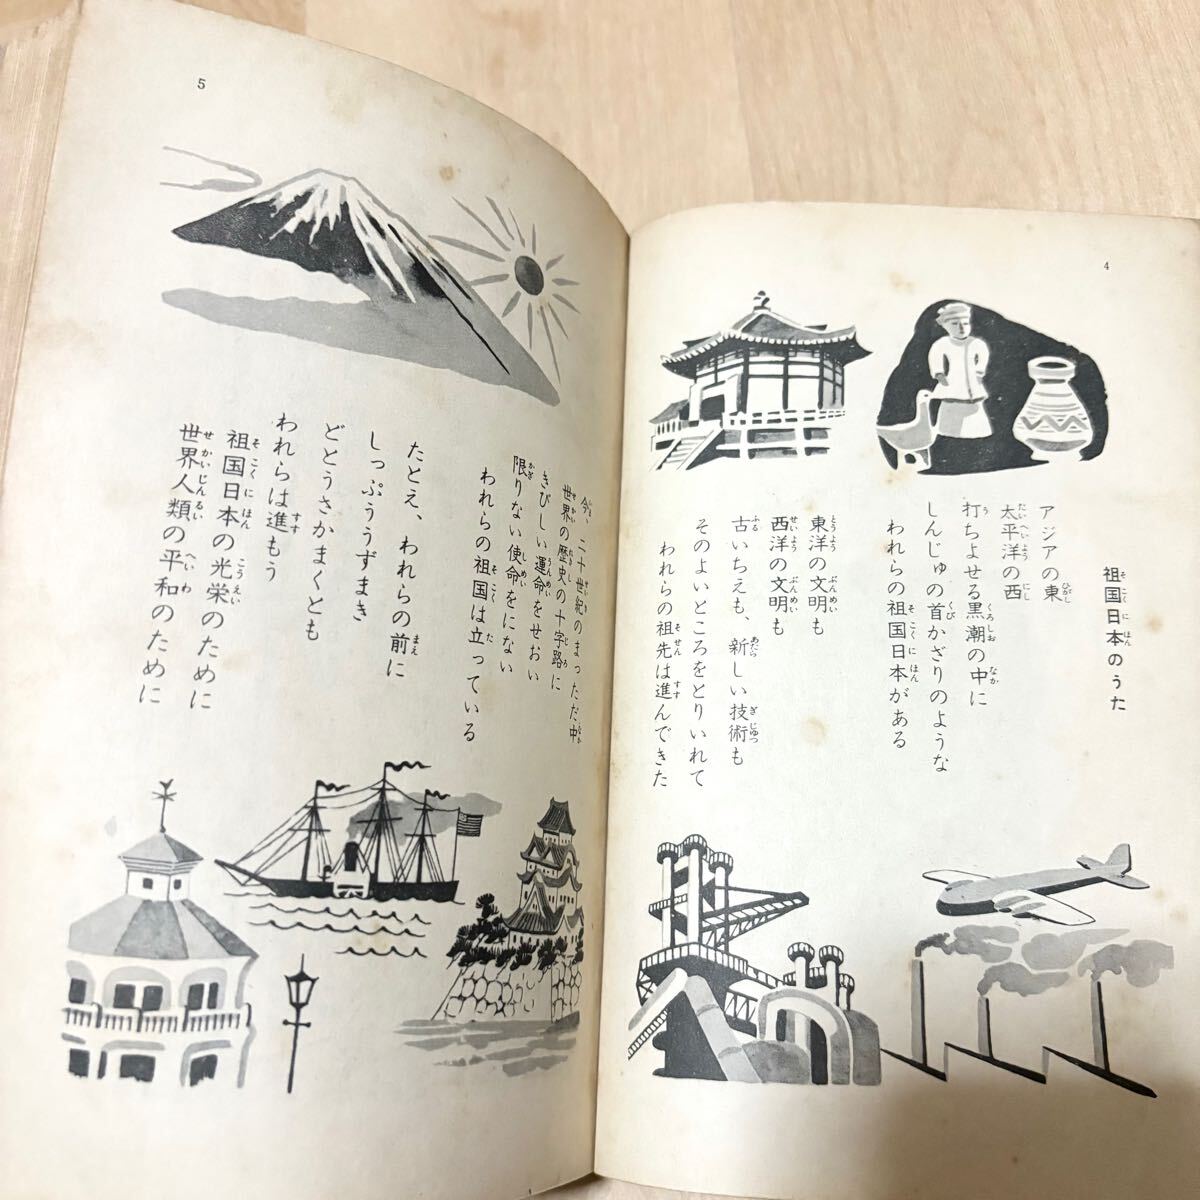 4
祖国日本のうた
アジアの東
太平洋の西
打ちよせる黒潮の中に
しんじゅの首かざりのような
われらの祖国日本がある
東洋の文明も
西洋の文明も
古いちえも、新しい技術も
そのよいところをとりいれて
われらの祖先は進んできた
5
今、二十世紀のまっただ中
世界の歴史の十字路に
きびしい運命をせおい
限りない使命をにない
われらの祖国は立っている
たとえ、われらの前に
しっぷううずまき
どとうさかまくとも
われらは進もう
祖国日本の光栄のために
世界人類の平和のために